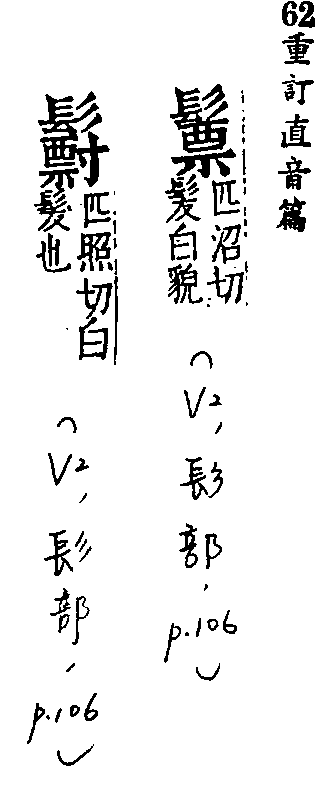 62重訂直音篇
匹沼切
髮白貌
(V2, 髟部, p.106)
匹照切白
髮也
(V2, 髟部, p.106)